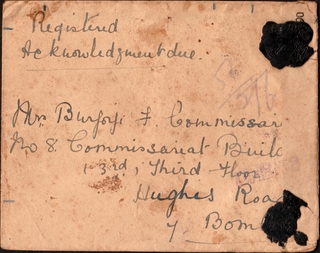 Registered
Acknowledgment due.
Mrs Burjorji F. Commissar
No 8 Commissariat Buil
1-3rd, Third Floor
Hughes Road
7 Bom